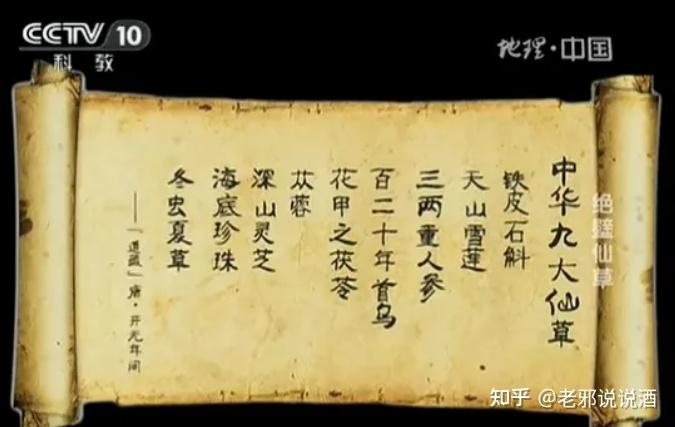 CCTV 10
科教
地理·中国
中华九大仙草
铁皮石斛
天山雪莲
三两重人参
百二十年首乌
花甲之茯苓
苁蓉
深山灵芝
海底珍珠
冬虫夏草
——「道藏」唐·开元年间
绝壁仙草
知乎 @老邪说说酒